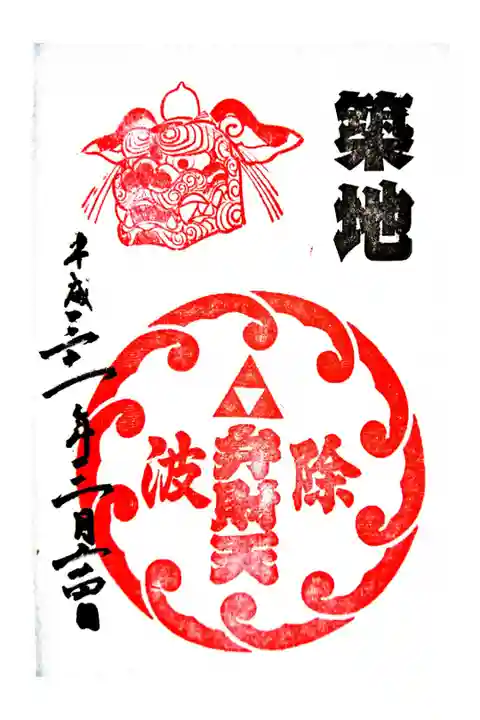 築地
波除
弁財天
平成三十一年二月十四日